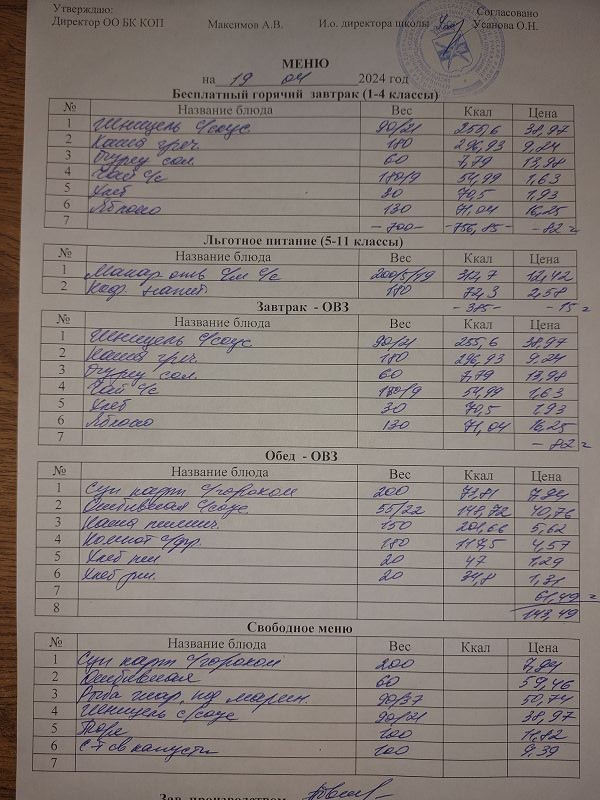 Утверждаю: Согласовано
Директор ОО БК КОП Максимов А.В. И.о. директора школы Усанова О.Н.
МЕНЮ
на 19 04 2024 год
Бесплатный горячий завтрак (1-4 классы)
№ Название блюда Вес Ккал Цена
1 Шницель с/соус 90/21 255,6 38,97
2 Каша греч. 180 296,93 9,24
3 Огурец сол. 60 7,79 13,98
4 Чай с/с 180/9 54,99 1,63
5 Хлеб 30 70,5 1,93
6 Яблоко 130 71,04 16,25
7 -700- -756,85- -82=
Льготное питание (5-11 классы)
№ Название блюда Вес Ккал Цена
1 Макар отв с/м с/с 200/5/19 312,7 12,42
2 Коф. напит 180 72,3 2,58
-385- -15=
Завтрак - ОВЗ
№ Название блюда Вес Ккал Цена
1 Шницель с/соус 90/21 255,6 38,97
2 Каша греч. 180 296,93 9,24
3 Огурец сол. 60 7,79 13,98
4 Чай с/с 180/9 54,99 1,63
5 Хлеб 30 70,5 1,93
6 Яблоко 130 71,04 16,25
7 -82=
Обед - ОВЗ
№ Название блюда Вес Ккал Цена
1 Суп карт с/горохом 200 71,81 7,84
2 Отбивная с/соус 55/22 148,72 40,76
3 Каша пшенич. 150 201,66 5,62
4 Компот с/фр. 180 117,5 4,57
5 Хлеб пш 20 47 1,29
6 Хлеб рж. 20 34,8 1,31
7 61,49=
8 143,49
Свободное меню
№ Название блюда Вес Ккал Цена
1 Суп карт с/горохом 200 7,84
2 Отбивная 60 59,46
3 Рыба жар. под марин. 90/37 50,74
4 Шницель с/соус 90/21 38,97
5 Пюре 100 11,82
6 С-т св капусты 100 9,39
7
Зав. производством